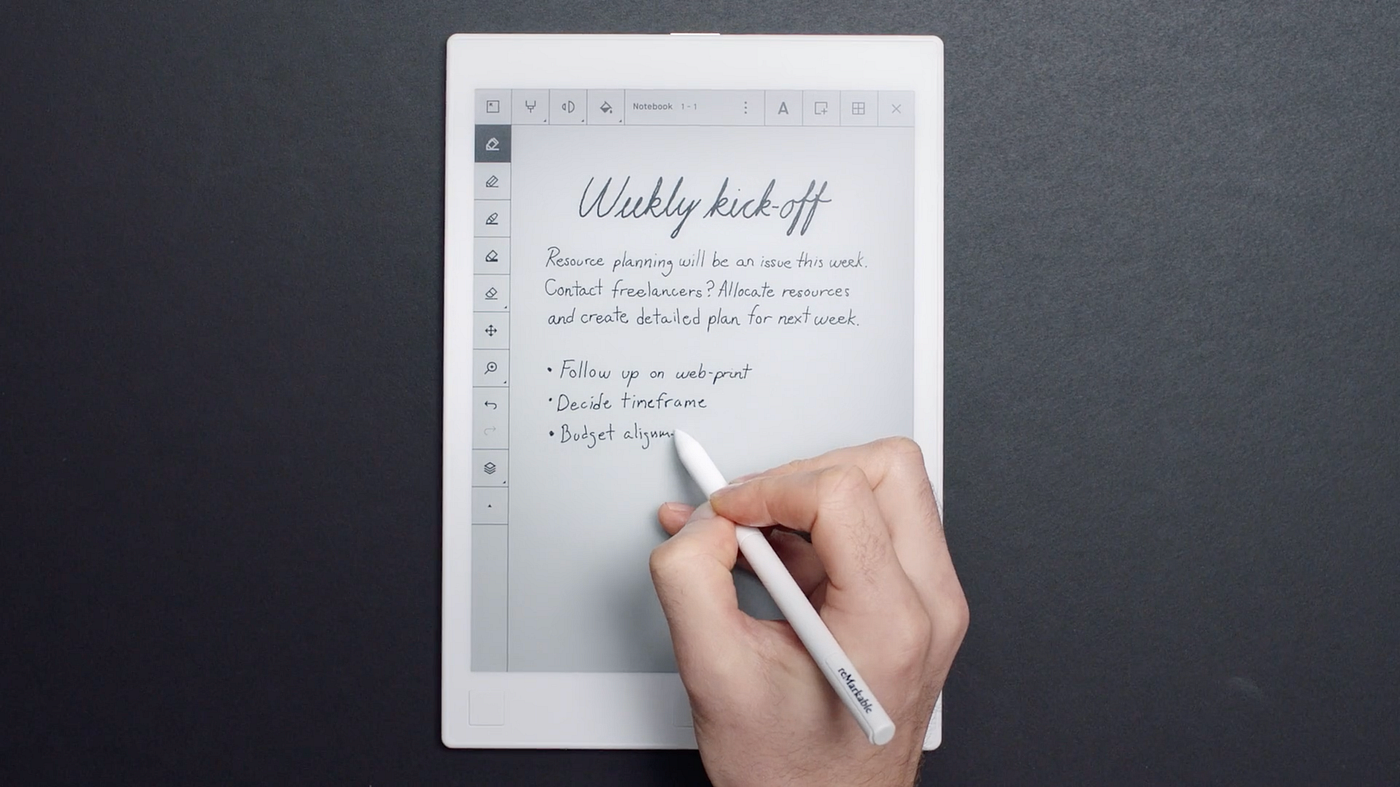 Notebook 1-1
A
Weekly kick-off
Resource planning will be an issue this week.
Contact freelancers? Allocate resources
and create detailed plan for next week.
• Follow up on web-print
• Decide timeframe
• Budget alignm
reMarkable